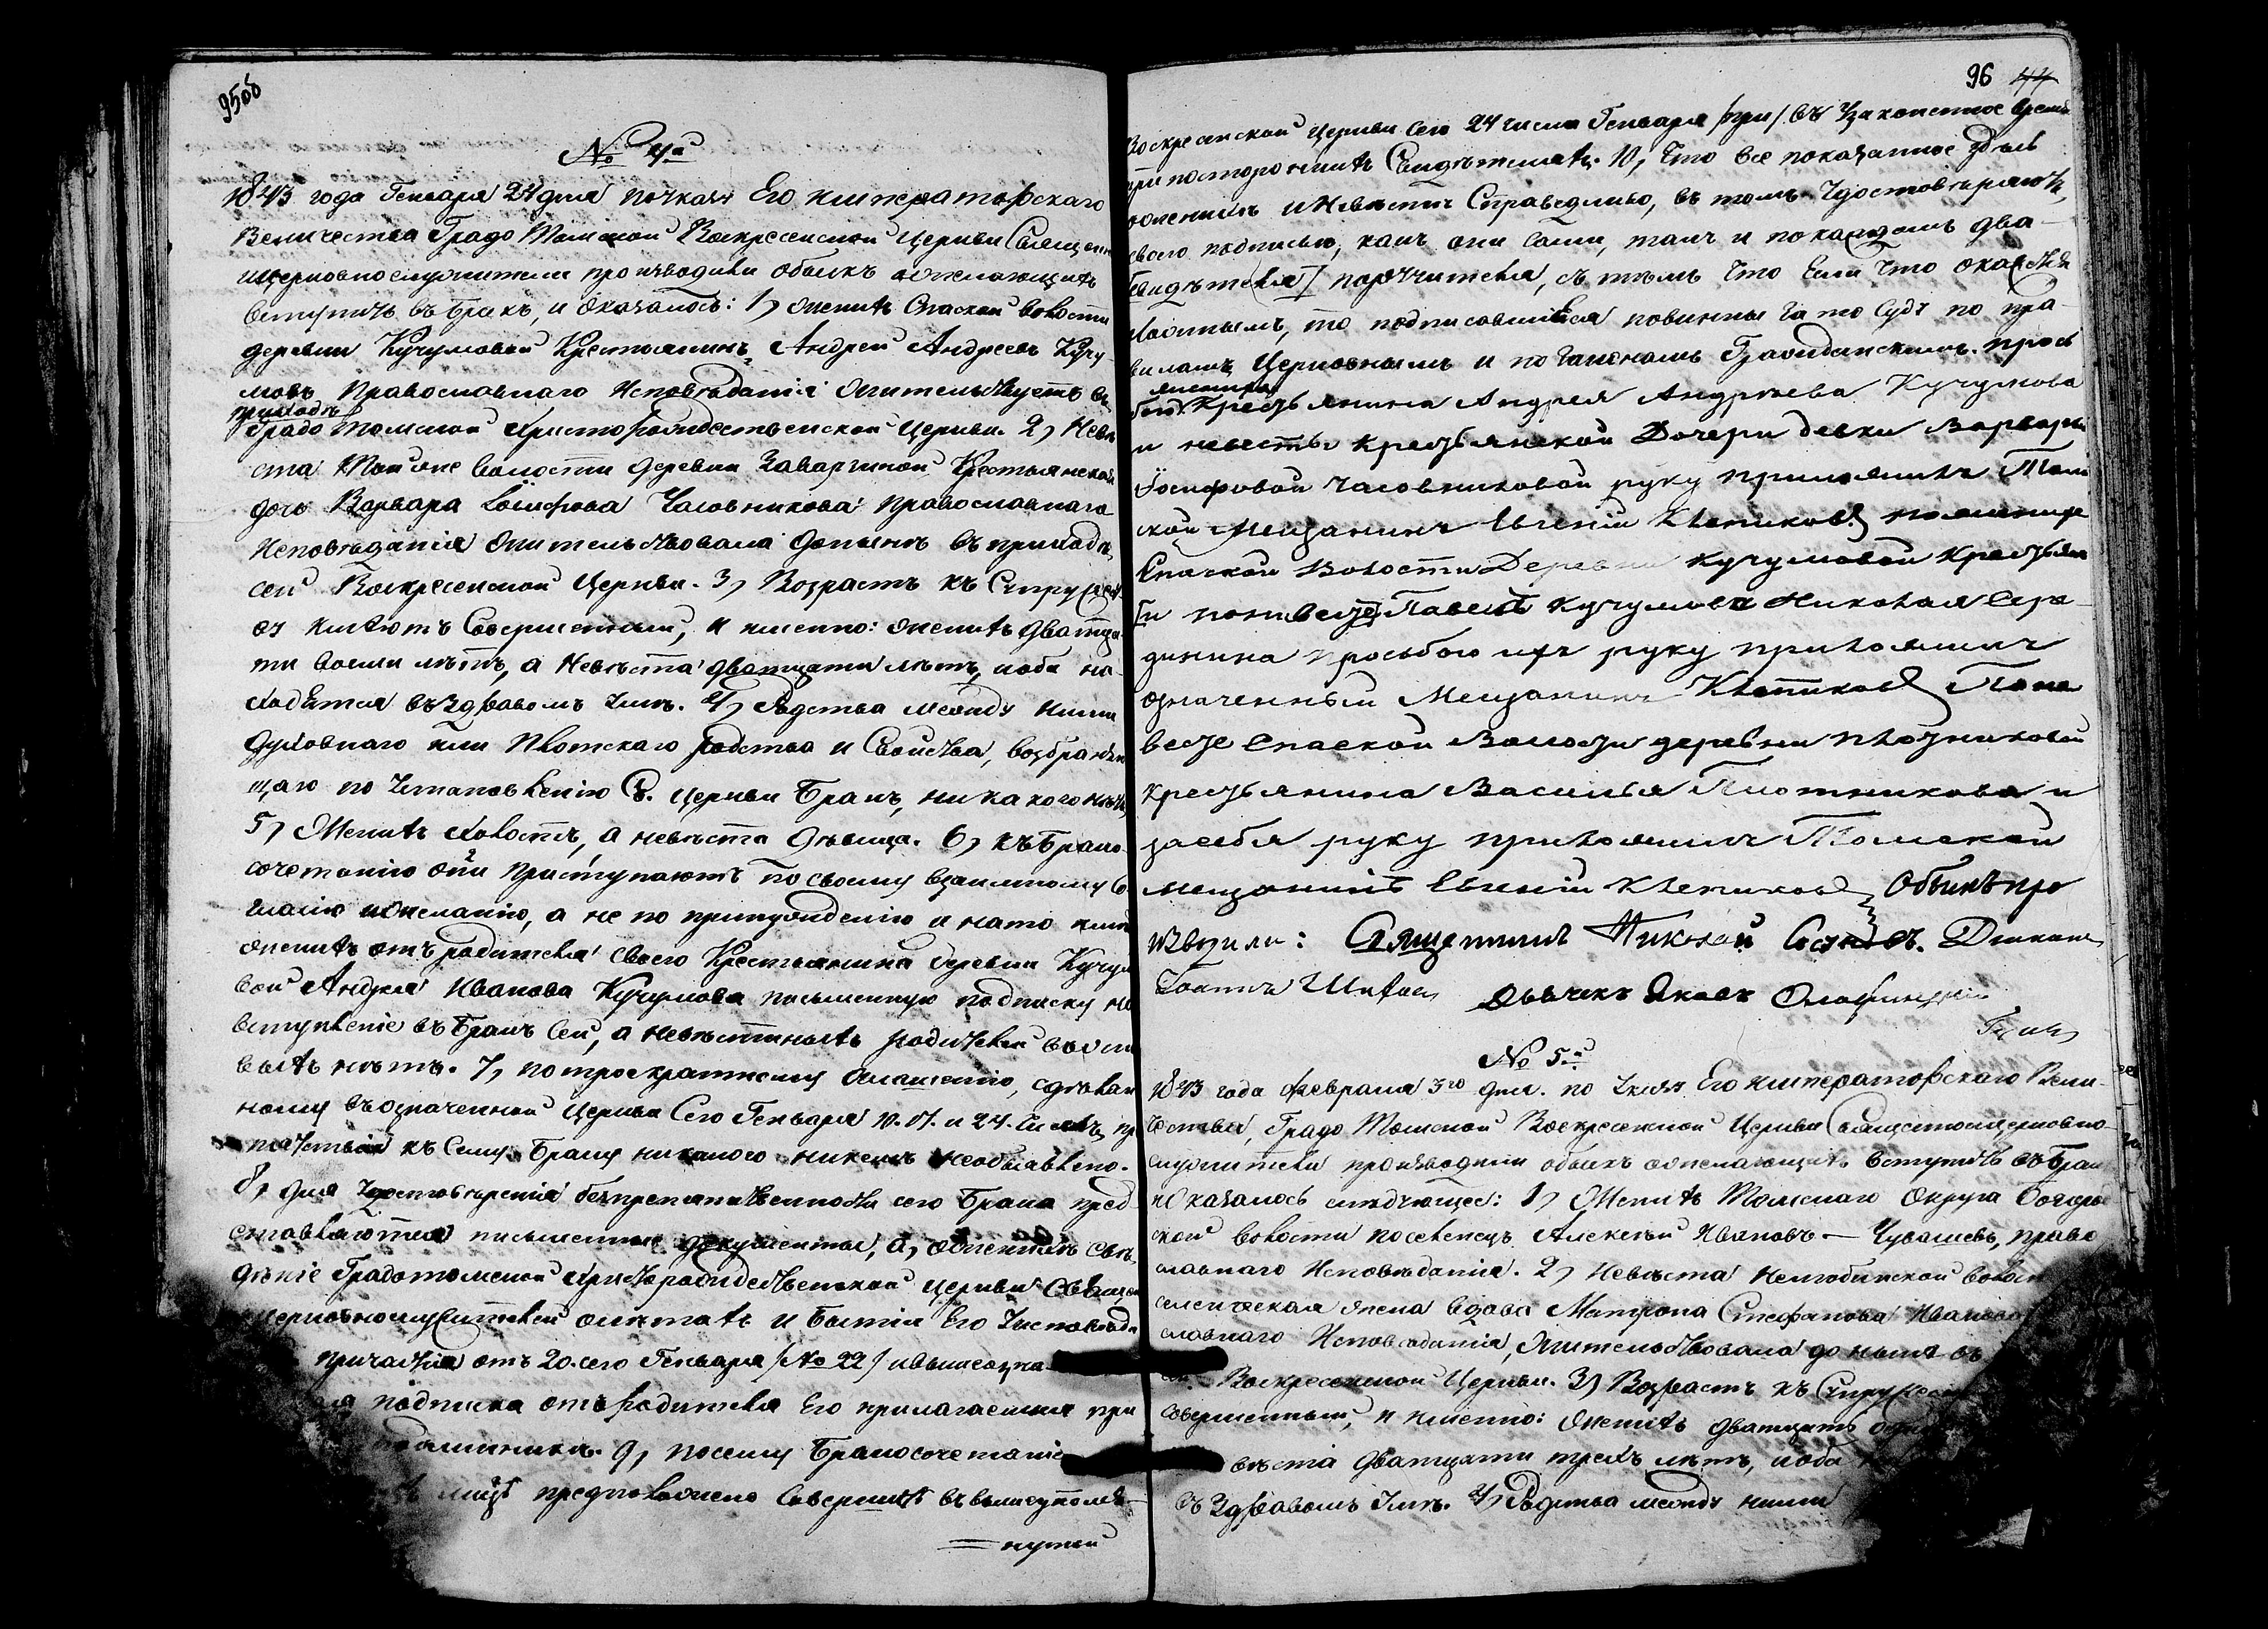 95об
№ 4й
1843 года Генваря 24 дня по указу Его Императорскаго
Величества Градо Томской Воскресенской Церкви Священно
и церковнослужители производили обыскъ о желающихъ
вступить въ бракъ, и оказалось: 1, женихъ Спаской волости
деревни Кучумовой Крестьянинъ Андрей Андреевъ Кучу-
мовъ православнаго исповѣданія жительствуетъ въ
приходѣ
Градо Томской Христорождественской Церкви. 2, Невѣ
ста той же волости деревни Заварзиной Крестьянская
дочь Варвара Іосифова Часовникова православнаго
исповѣданія жительствовала донынѣ въ приходѣ
сей Воскресенской Церкви. 3, Возрастъ къ Супружест
ву имѣютъ Совершенный, и именно: женихъ дватца-
ти восми лѣтъ, а Невѣста дватцати лѣтъ, и оба на-
ходятся въ здравомъ умѣ. 4, Родства между ними
духовнаго или плотскаго родства и Свойства, возбраняю
щаго по установленію Св. Церкви бракъ, никакого нѣтъ
5, Женихъ холостъ, а невѣста дѣвица. 6, къ Брако-
сочетанію они приступаютъ по своему взаимному со
гласію и желанію, а не по принужденію и на то имѣ
женихъ отъ родителя своего Крестьянина деревни Кучумо
вой Андрея Иванова Кучумова письменную подписку на
вступленіе въ бракъ сей, а невѣстиныхъ родителей въ жи
выхъ нѣтъ. 7, по троекратному оглашенію, сдѣлан
ному въ означенной Церкви Сего Генваря 10. 17. и 24. Числъ, пре
пятствія къ Сему браку никакого никемъ не объявлено.
8, Для удостовѣренія безпрепятственности сего брака пред-
ставляются письменные документы, а, о женихѣ свѣ
дѣніе Градотомской Христорождественской Церкви Священно
церковнослужителей о лѣтахъ и бытіи Его у исповѣди
причастія отъ 20. сего Генваря /№ 22/ и вышеозна
подписка отъ родителя Его прилагаемыя при
подлинникѣ. 9, посему Бракосочетаніе
лицъ предположено совершить въ вышеупомя-
нутой
96 44
Воскресенской Церкви Сего 24 числа Генваря /при/ въ узаконенное время
при постороннихъ Свидѣтеляхъ. 10, Что все показанное здѣсь
о женихѣ и Невѣстѣ Справедливо, въ томъ удостовѣряютъ,
своею подписью, какъ они сами, такъ и по каждомъ два-
Свидѣтеля/ поручителя, съ тѣмъ что Если что окажется
ложнымъ, то подписавшіеся повинны за то Суду по пра-
виламъ Церковнымъ и по Законамъ Гражданскимъ. прозь
жениха
бою Крестьянина Андрея Андреева Кучумова
и невесты крестьянской дочери девки Варвары
Іосифовой Часовниковой руку приложилъ Том
ской Мещанинъ Евгеній Клепиковъ по женихе
Спаской Волости Деревни Кучумовой Крестьяни
и поневесте Павелъ Кучумовъ Николая Сере-
динина прозьбою ихъ руку приложилъ
означенный Мещанинъ Клепиковъ Поне
весте Спаской Волости деревни плотниковой
крестьянина Василья Плотникова и
засебя руку приложилъ Томской
мещанинъ Евгеній Клепиковъ Обыскъ про
изводили: Священникъ Николай Сосуновъ. Діаконъ
Іоаннъ Дьячекъ Яковъ
№ 5й
1843 года Февраля 3го дня. по Указу Его Императорскаго Вели-
чества, Градо Томской Воскресенской Церкви Священноицерковно-
служители производили обыскъ о желающихъ вступить въ брак
и оказалось слѣдующее: 1, Женихъ Томскаго Округа Богоро
ской волости поселенецъ Алексѣй Ивановъ — Чувашевъ, право
славнаго исповѣданія. 2, Невѣста Нелюбинской волос
селенческая жена вдова Матрона Стефанова Иванова
славнаго Исповѣданія, жительствовала до нынѣ въ
Воскресенской Церкви. 3, Возрастъ къ Супружес
совершенный, и именно: женихъ дватцати
вѣста дватцати трехъ лѣтъ, и оба
въ здравомъ умѣ. 4, Родства между ними